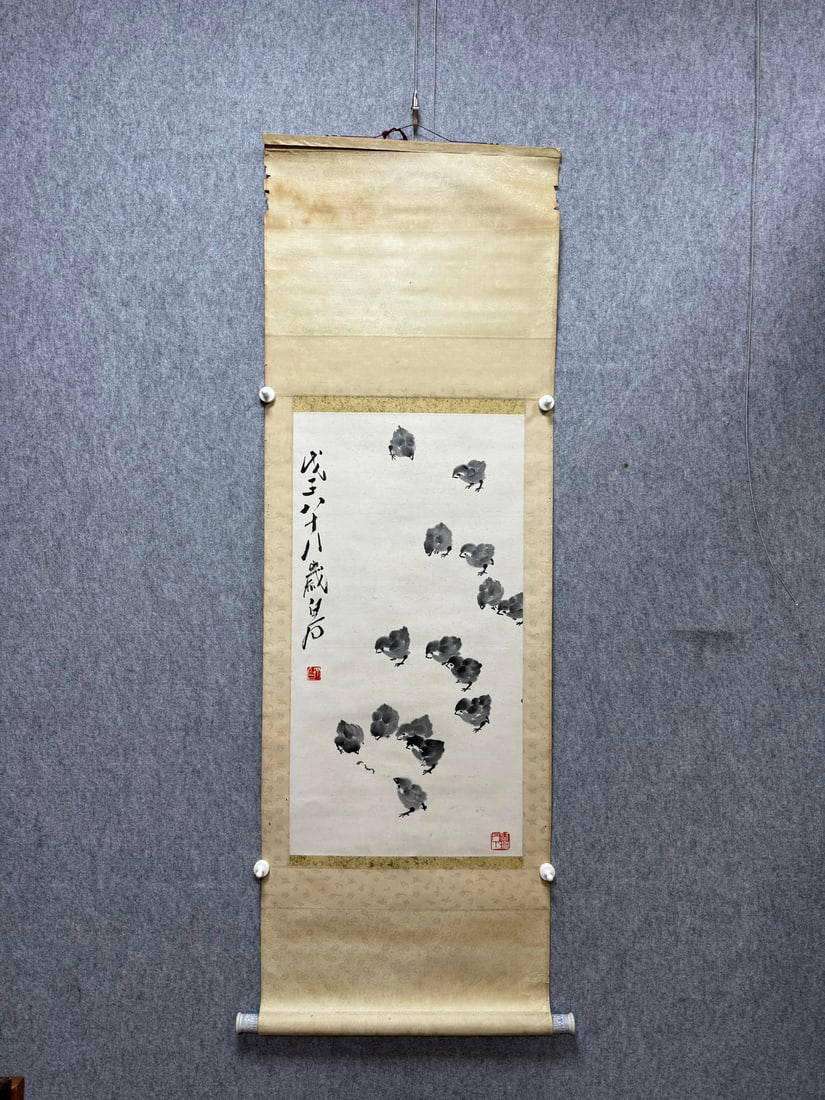 戊子八十八歲白石